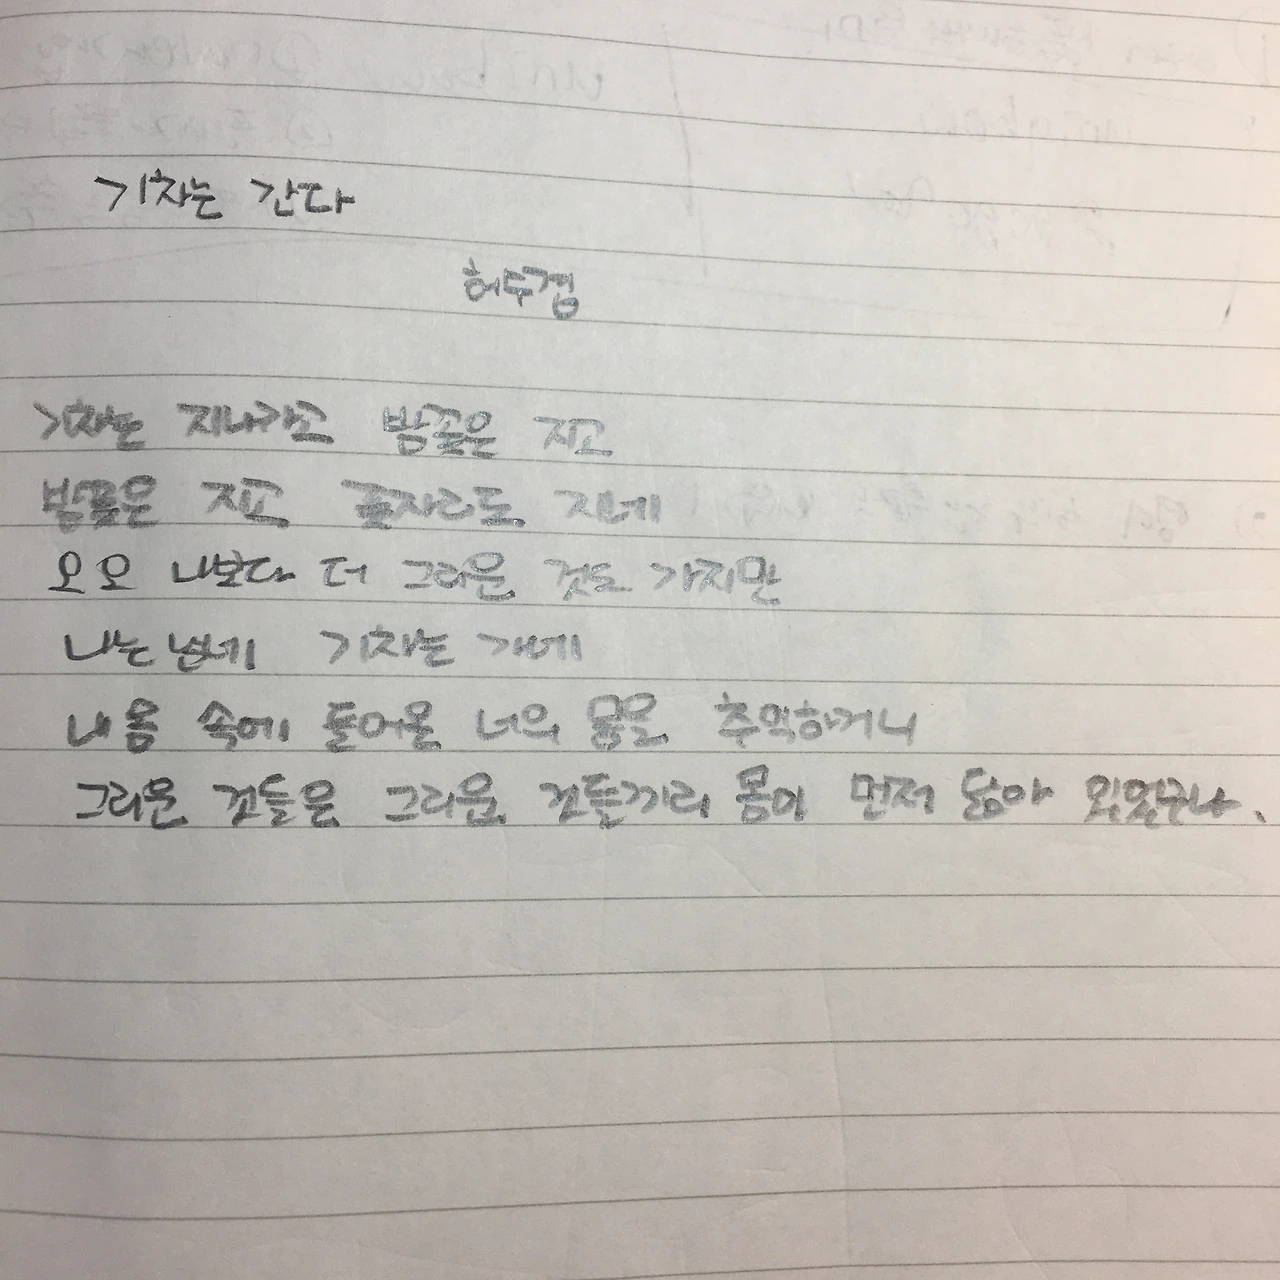 기차는 간다
허수경
기차는 지나가고 밤꽃은 지고
밤꽃은 지고 꽃자리도 지네
오오 나보다 더 그리운 것도 가지만
나는 남네 기차는 가네
내 몸 속에 들어온 너의 몸을 추억하거니
그리운 것들은 그리운 것들끼리 몸이 먼저 닮아 있었구나.